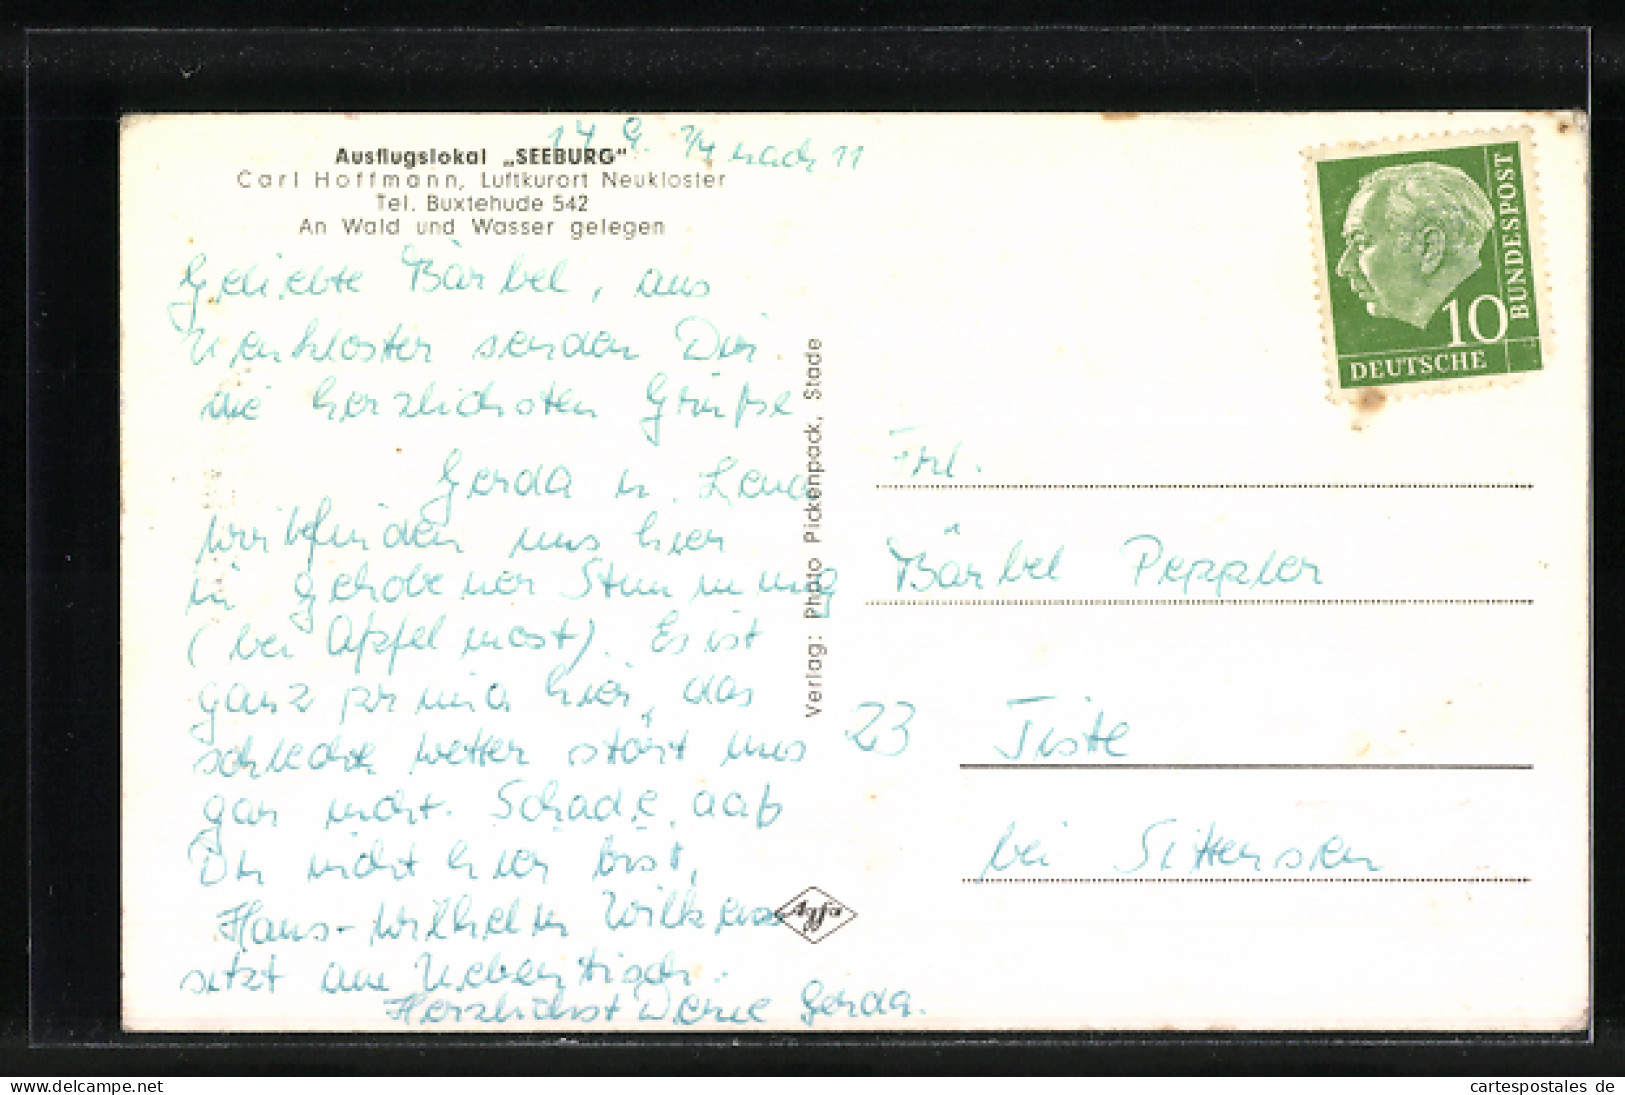 14. 9. 1/4 nach 11
Ausflugslokal „SEEBURG"
Carl Hoffmann, Luftkurort Neukloster
Tel. Buxtehude 542
An Wald und Wasser gelegen
Geliebte Bärbel, aus
Neukloster senden Dir
die herzlichsten Grüße
Gerda u. Lena
Wir befinden uns hier
in gehobener Stimmung
(bei Apfelmost). Es ist
ganz prima hier, das
schlechte Wetter stört uns
gar nicht. Schade, daß
Du nicht hier bist,
Hans-Wilhelm Wilkens
sitzt am Nebentisch.
Herzlichst Deine Gerda.
Verlag: Photo Pickenpack, Stade
Agfa
BUNDESPOST
10
DEUTSCHE
Frl.
Bärbel Peppler
23 Tiste
bei Sittensen
Created for cartespostales.de
cartespostales de